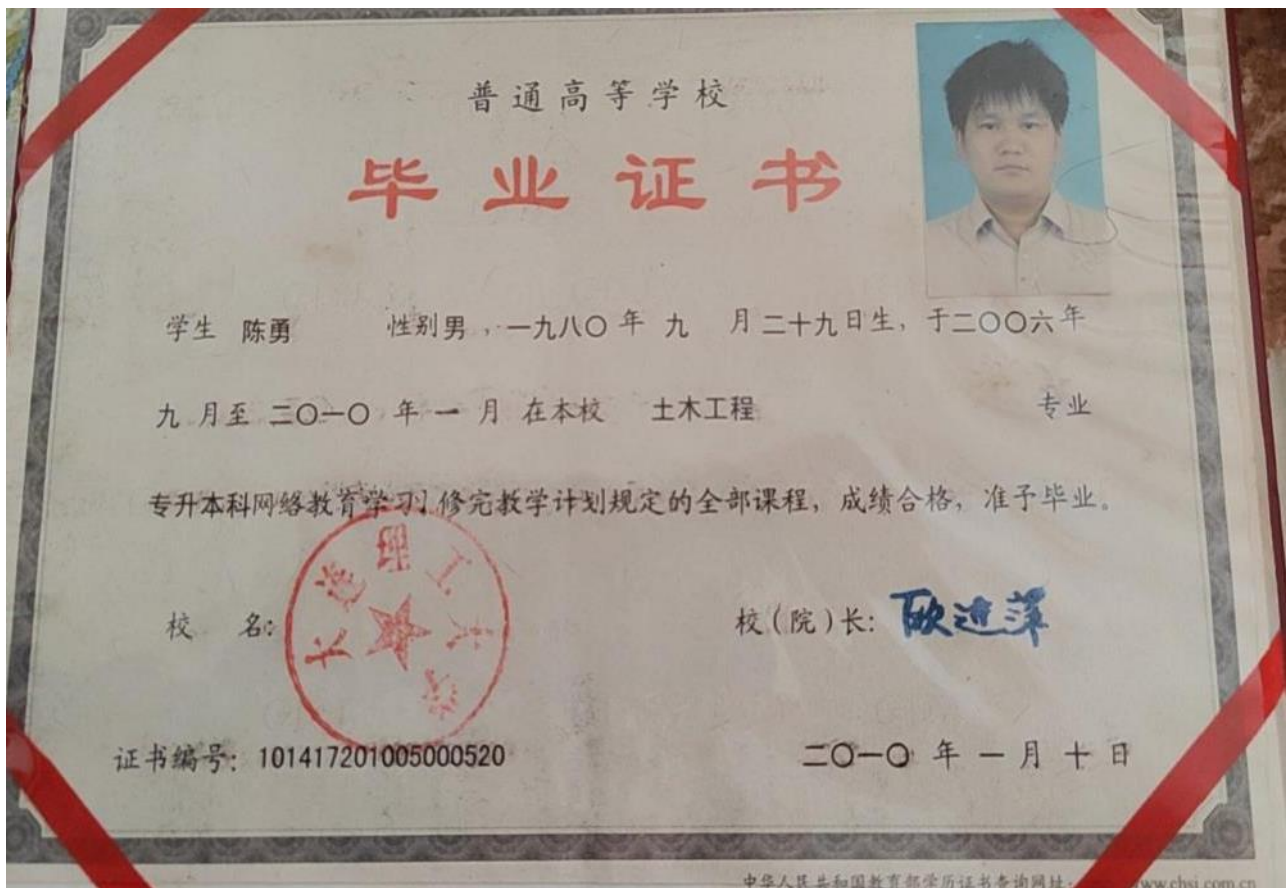 普通高等学校
毕业证书
学生 陈勇 性别男，一九八〇年 九 月二十九日生，于二〇〇六年
九 月至 二〇一〇 年 一 月 在本校 土木工程 专业
专升本科网络教育学习，修完教学计划规定的全部课程，成绩合格，准予毕业。
校 名：
大连理工大学
校(院)长：欧进萍
证书编号：101417201005000520
二〇一〇 年 一 月 十 日
中华人民共和国教育部学历证书查询网址：www.chsi.com.cn